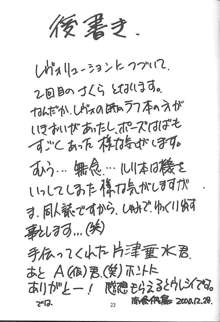 後書き.
レヴォリューションにつづいて、
2回目のさくらとなります。
なんだか、レヴォの時のラフ本の方が
いきおいがあったし、ポーズはばも
すごくあった様な気がします。
むう…無念… ルリ本は機を
いっしてしまった様な気がしますが
ま、同人誌ですから、しゅみで、ゆっくり出す
事とします…(笑)
手伝ってくれた片津垂水君、
あと A(仮)君、(笑) ホントに
ありがとー! 感想もらえるとウレシイでる。
では 2000.12.29.
23